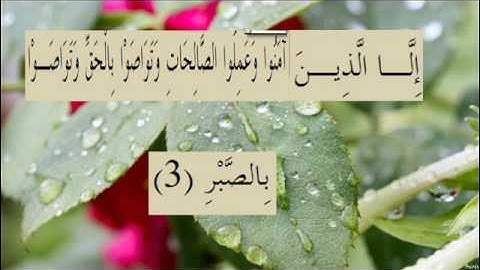 إِلَّا الَّذِينَ آمَنُوا وَعَمِلُوا الصَّالِحَاتِ وَتَوَاصَوْا بِالْحَقِّ وَتَوَاصَوْا
بِالصَّبْرِ (3)